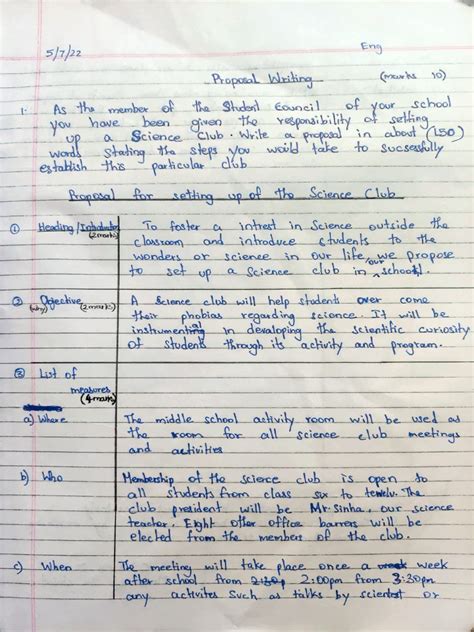 5/7/22 Eng
Proposal Writing (marks 10)
1. As the member of the Student Council of your school
you have been given the responsibility of setting
up a Science Club. Write a proposal in about (150)
words stating the steps you would take to successfully
establish this particular club
Proposal for setting up of the Science Club
① Heading / (2 marks) To foster a intrest in Science outside the
classroom and introduce students to the
wonders or science in our life, we propose
to set up a Science club in our school.
② Objective (why) (2 marks) A Science club will help students over come
their phobias regarding science. It will be
instrumental in developing the scientific curiosity
of students through its activity and program.
③ List of
measures
(4 marks)
a) Where The middle school activity room will be used as
the room for all science club meetings
and activities
b) Who Membership of the science club is open to
all students from class six to The
club president will be Mr. Sinha, our science
teacher. Eight other office barrers will be
elected from the members of the club.
c) When The meeting will take place once a week week
after school from 2:30p 2:00pm from 3:30pm
any activites such as talks by scientest or